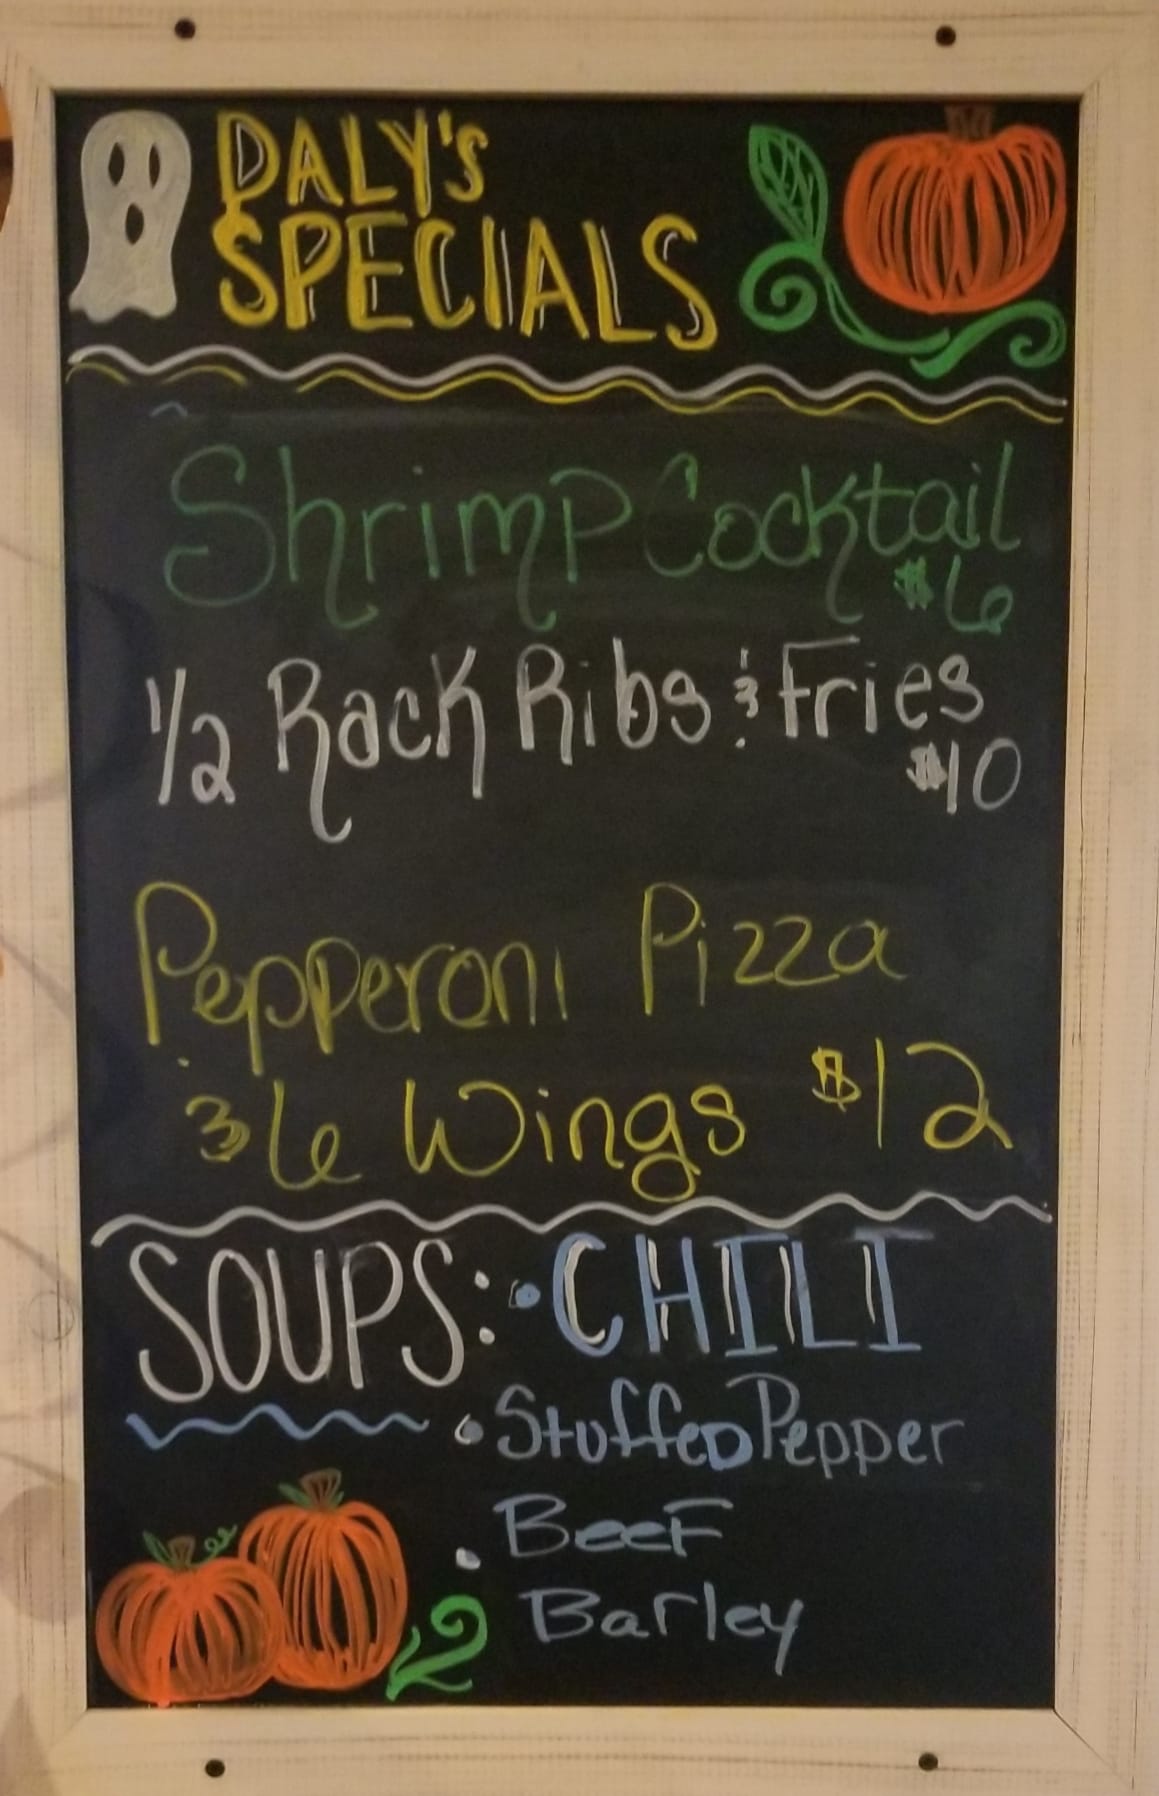 DALY'S
SPECIALS
Shrimp Cocktail
$6
1/2 Rack Ribs & Fries
$10
Pepperoni Pizza
& 6 Wings $12
SOUPS: • CHILI
• Stuffed Pepper
• Beef
Barley